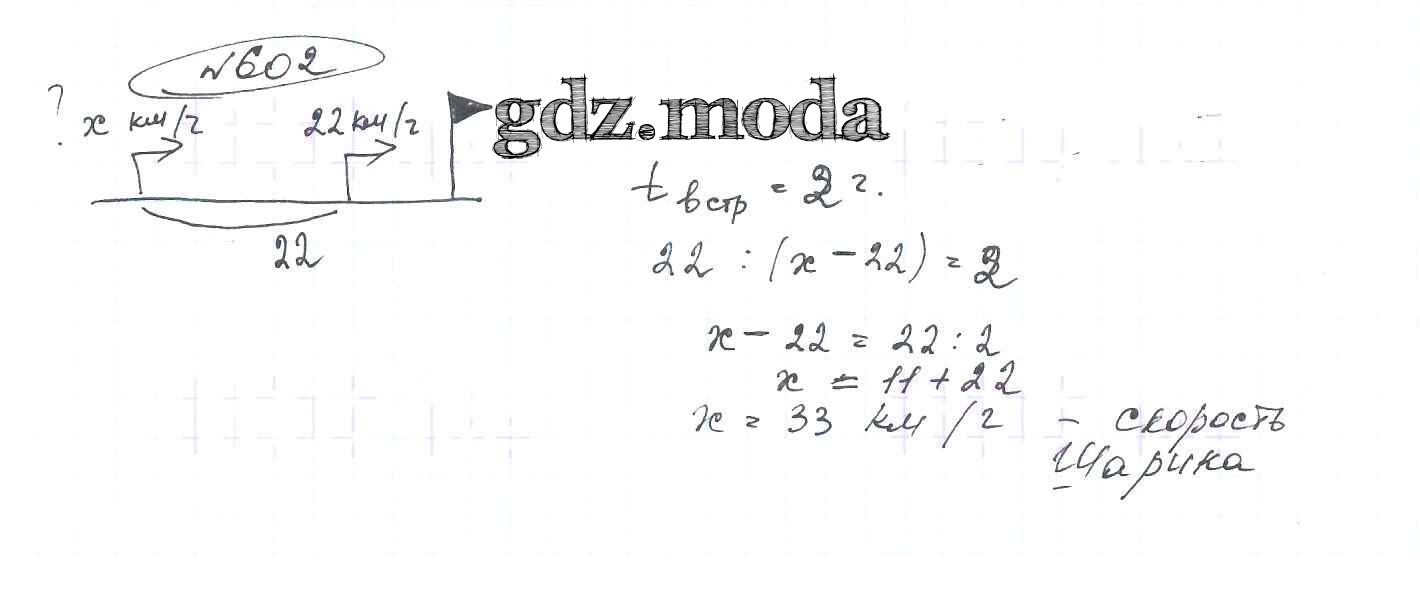 №602
gdz.moda
? x км/ч 22км/ч
22
t встр = 2 ч.
22 : (x - 22) = 2
x - 22 = 22 : 2
x = 11 + 22
x = 33 км/ч - скорость
Шарика